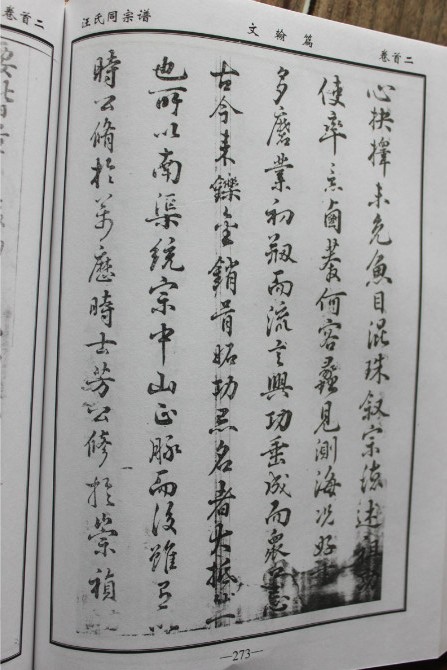 卷首二
汪氏同宗谱
文翰篇
卷首二
心抉擇未免魚目混珠叙宗法述
使率意鹵莽何容蠡見測海况好
多磨業初剏而流言興功垂成而衆
古今來鑠金銷骨妬功忌名者大抵
也所以南渠統宗中山正脉而後雖
時公脩於萬歷時士芳公修於崇禎
—273—